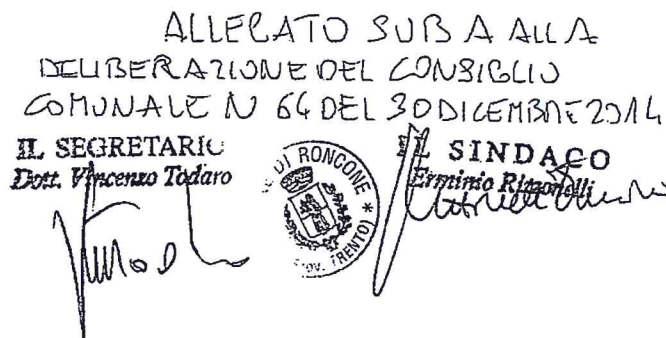 ALLEGATO SUB A ALLA
DELIBERAZIONE DEL CONSIGLIO
COMUNALE N 64 DEL 30 DICEMBRE 2014
IL SEGRETARIO
Dott. Vincenzo Todaro
DI RONCONE *
PROV. TRENTO)
IL SINDACO
Erminio Rizzonelli